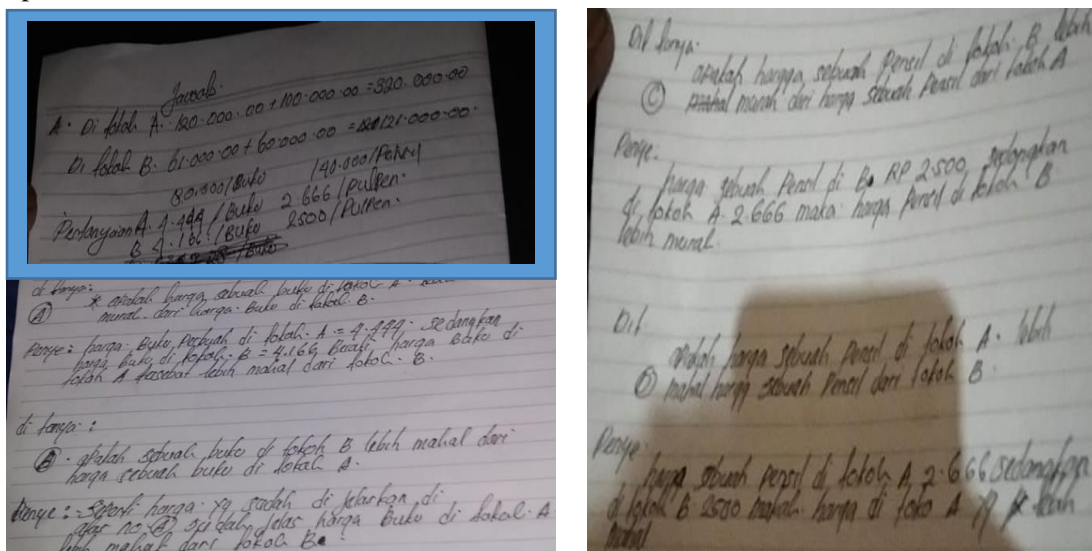 Jawab.
A. Di tokoh A. 120.000.00 + 100.000.00 = 320.000.00
Di tokoh B. 61.000.00 + 60.000.00 = 121.000.00.
80.000/Buku 140.000/Pensil
Pertanyaan A. 4.444 / Buku 2.666 / pulpen.
B 4.166 / Buku 2500 / Pulpen.
di tanya:
(A) * apalah harga sebuah buku di tokoh A.
murah dari harga Buku di tokoh B.
Penye: harga. Buku Perbuah di tokoh. A = 4.444. Sedangkan
harga buku di tokoh. B = 4.166 Berarti harga Buku di
tokoh A tersebut lebih mahal dari tokoh. B.
di tanya :
(B) . apalah sebuah buku di tokoh B lebih mahal dari
harga sebuah buku di tokoh A.
Penye: - Seperti harga yg sudah di jelaskan di
atas no (A) sudah jelas harga Buku di tokoh. A
lebih mahal dari tokoh B.
Dit tanya.
apalah harga sebuah Pensil di tokoh. B lebih
(C) murah dari harga sebuah Pensil dari tokoh A
Penye.
harga sebuah Pensil di B. RP 2.500, sedangkan
di tokoh A. 2.666 maka harga Pensil di tokoh B
lebih murah.
Dit
apalah harga sebuah Pensil di tokoh A. lebih
(D) mahal harga sebuah Pensil dari tokoh B.
Penye.
harga sebuah pensil di tokoh A. 2.666 sedangkan
di tokoh B. 2500 makah harga di toko A yg lebih
mahal